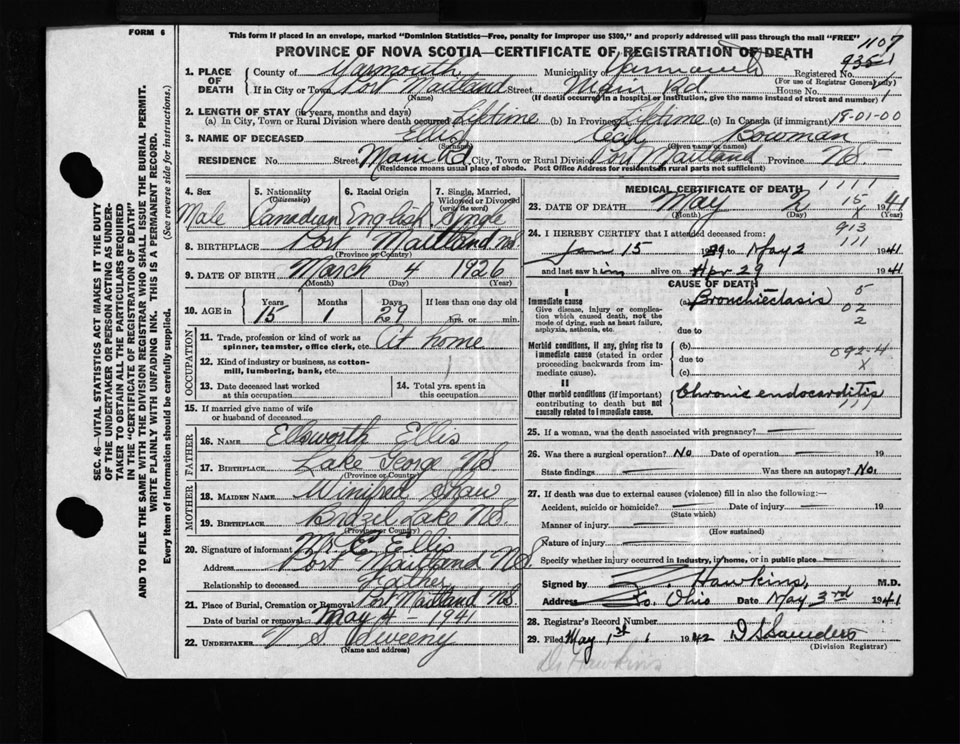 FORM 6
This form if placed in an envelope, marked "Dominion Statistics—Free, penalty for improper use $300," and properly addressed will pass through the mail "FREE"
PROVINCE OF NOVA SCOTIA—CERTIFICATE OF REGISTRATION OF DEATH
1107
935-1
1. PLACE OF DEATH
County of Yarmouth Municipality Yarmouth Registered No.
(For use of Registrar General only)
If in City or Town Port Maitland Street Main Rd. House No.
(Name) (If death occurred in a hospital or institution, give the name instead of street and number)
2. LENGTH OF STAY (in years, months and days)
(a) In City, Town or Rural Division where death occurred Lifetime (b) In Province Lifetime (c) In Canada (if immigrant) 18-01-00
3. NAME OF DECEASED Ellis Cecil Bowman
(Surname) (Given name or names)
RESIDENCE No. Street Main Rd. City, Town or Rural Division Port Maitland Province NS
(Residence means usual place of abode. Post Office Address for residents in rural parts not sufficient)
4. Sex Male
5. Nationality (Citizenship) Canadian
6. Racial Origin English
7. Single, Married, Widowed or Divorced (write the word) Single
8. BIRTHPLACE Port Maitland NS
(Province or Country)
9. DATE OF BIRTH March 4 1926
(Month) (Day) (Year)
10. AGE in Years 15 Months 1 Days 29 If less than one day old hrs. or min.
OCCUPATION
11. Trade, profession or kind of work as spinner, teamster, office clerk, etc. At home
12. Kind of industry or business, as cotton-mill, lumbering, bank, etc.
13. Date deceased last worked at this occupation
14. Total yrs. spent in this occupation
15. If married give name of wife or husband of deceased
FATHER
16. NAME Ellsworth Ellis
17. BIRTHPLACE Lake George NS
(Province or Country)
MOTHER
18. MAIDEN NAME Winifred Shaw
19. BIRTHPLACE Brazil Lake NS.
(Province or Country)
20. Signature of informant Ellis
Address Port Maitland NS
Relationship to deceased Father
21. Place of Burial, Cremation or Removal Port Maitland NS
Date of burial or removal May 4 - 1941
22. UNDERTAKER V S Sweeny
(Name and address)
MEDICAL CERTIFICATE OF DEATH 1111
23. DATE OF DEATH May 2 15 1941
(Month) (Day) (Year)
24. I HEREBY CERTIFY that I attended deceased from: 913
111
Jan 15 1939 to May 2 1941
and last saw him alive on Apr 29 1941
CAUSE OF DEATH
I
Immediate cause
Give disease, injury or complication which caused death, not the mode of dying, such as heart failure, asphyxia, asthenia, etc.
(a) Bronchiectasis 5
02
2
due to
Morbid conditions, if any, giving rise to immediate cause (stated in order proceeding backwards from immediate cause).
(b)
due to 092-4
(c) x
II
Other morbid conditions (if important) contributing to death but not causally related to immediate cause.
Chronic endocarditis
111
25. If a woman, was the death associated with pregnancy? —
26. Was there a surgical operation? No Date of operation — 19
State findings — Was there an autopsy? No.
27. If death was due to external causes (violence) fill in also the following:—
Accident, suicide or homicide? — Date of injury — 19
(State which)
Manner of injury —
(How sustained)
Nature of injury —
Specify whether injury occurred in Industry, in home, or in public place —
Signed by Hawkins, M.D.
Address So. Ohio Date May 3rd 1941
28. Registrar's Record Number
29. Filed May 1st 1942 D S Saunders
(Division Registrar)
Dr Hawkins
SEC. 46—VITAL STATISTICS ACT MAKES IT THE DUTY
OF THE UNDERTAKER OR PERSON ACTING AS UNDER-
TAKER TO OBTAIN ALL THE PARTICULARS REQUIRED
IN THE "CERTIFICATE OF REGISTRATION OF DEATH"
AND TO FILE THE SAME WITH THE DIVISION REGISTRAR WHO SHALL ISSUE THE BURIAL PERMIT.
WRITE PLAINLY WITH UNFADING INK. THIS IS A PERMANENT RECORD.
Every item of information should be carefully supplied. (See reverse side for instructions.)